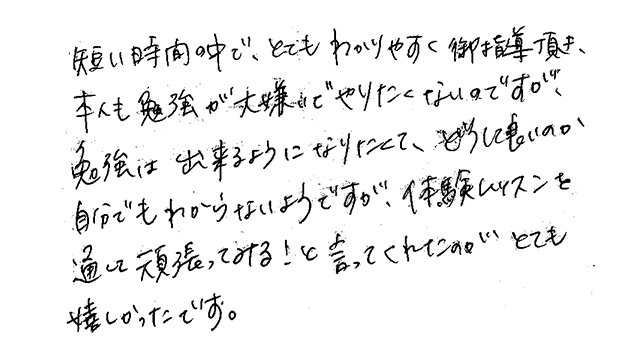 短い時間の中で、とてもわかりやすく御指導頂き、
本人も勉強が大嫌いでやりたくないのですが、
勉強は出来るようになりたくて、どうして良いのか
自分でもわからないようですが、体験レッスンを
通して頑張ってみる！と言ってくれたのがとても
嬉しかったです。